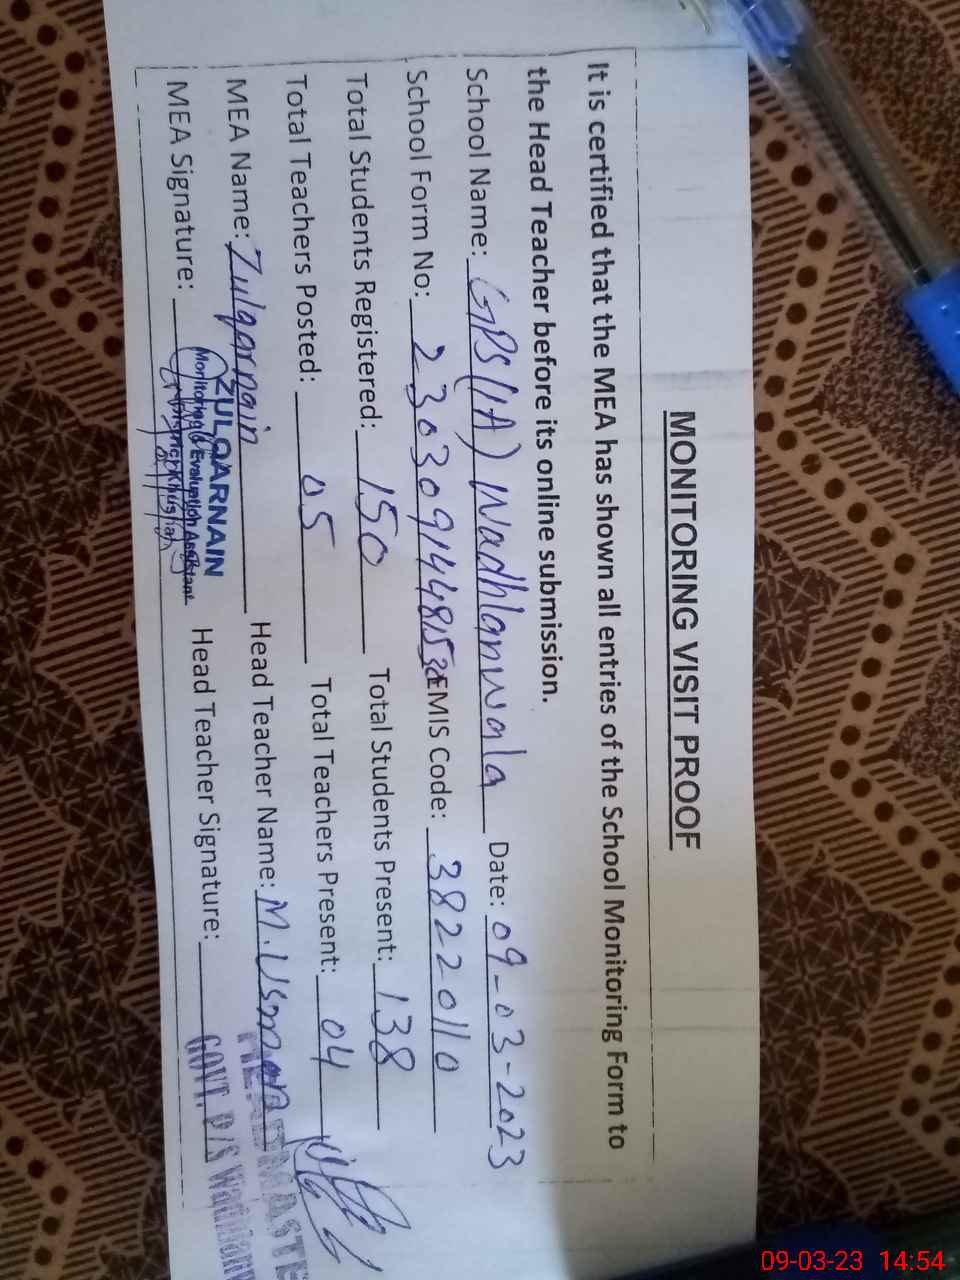 MONITORING VISIT PROOF
It is certified that the MEA has shown all entries of the School Monitoring Form to
the Head Teacher before its online submission.
School Name: GPS (IA) Wadhlanwala Date: 09-03-2023
School Form No: EMIS Code: 38220110
Total Students Registered: 150 Total Students Present: 138
Total Teachers Posted: 05 Total Teachers Present: 04
MEA Name: Zulqarnain Head Teacher Name: M. Usman
MEA Signature: Head Teacher Signature:
ZULQARNAIN
Monitoring & Evaluation Assistant
HEADMASTE
GOVT. P/S
09-03-23 14:54